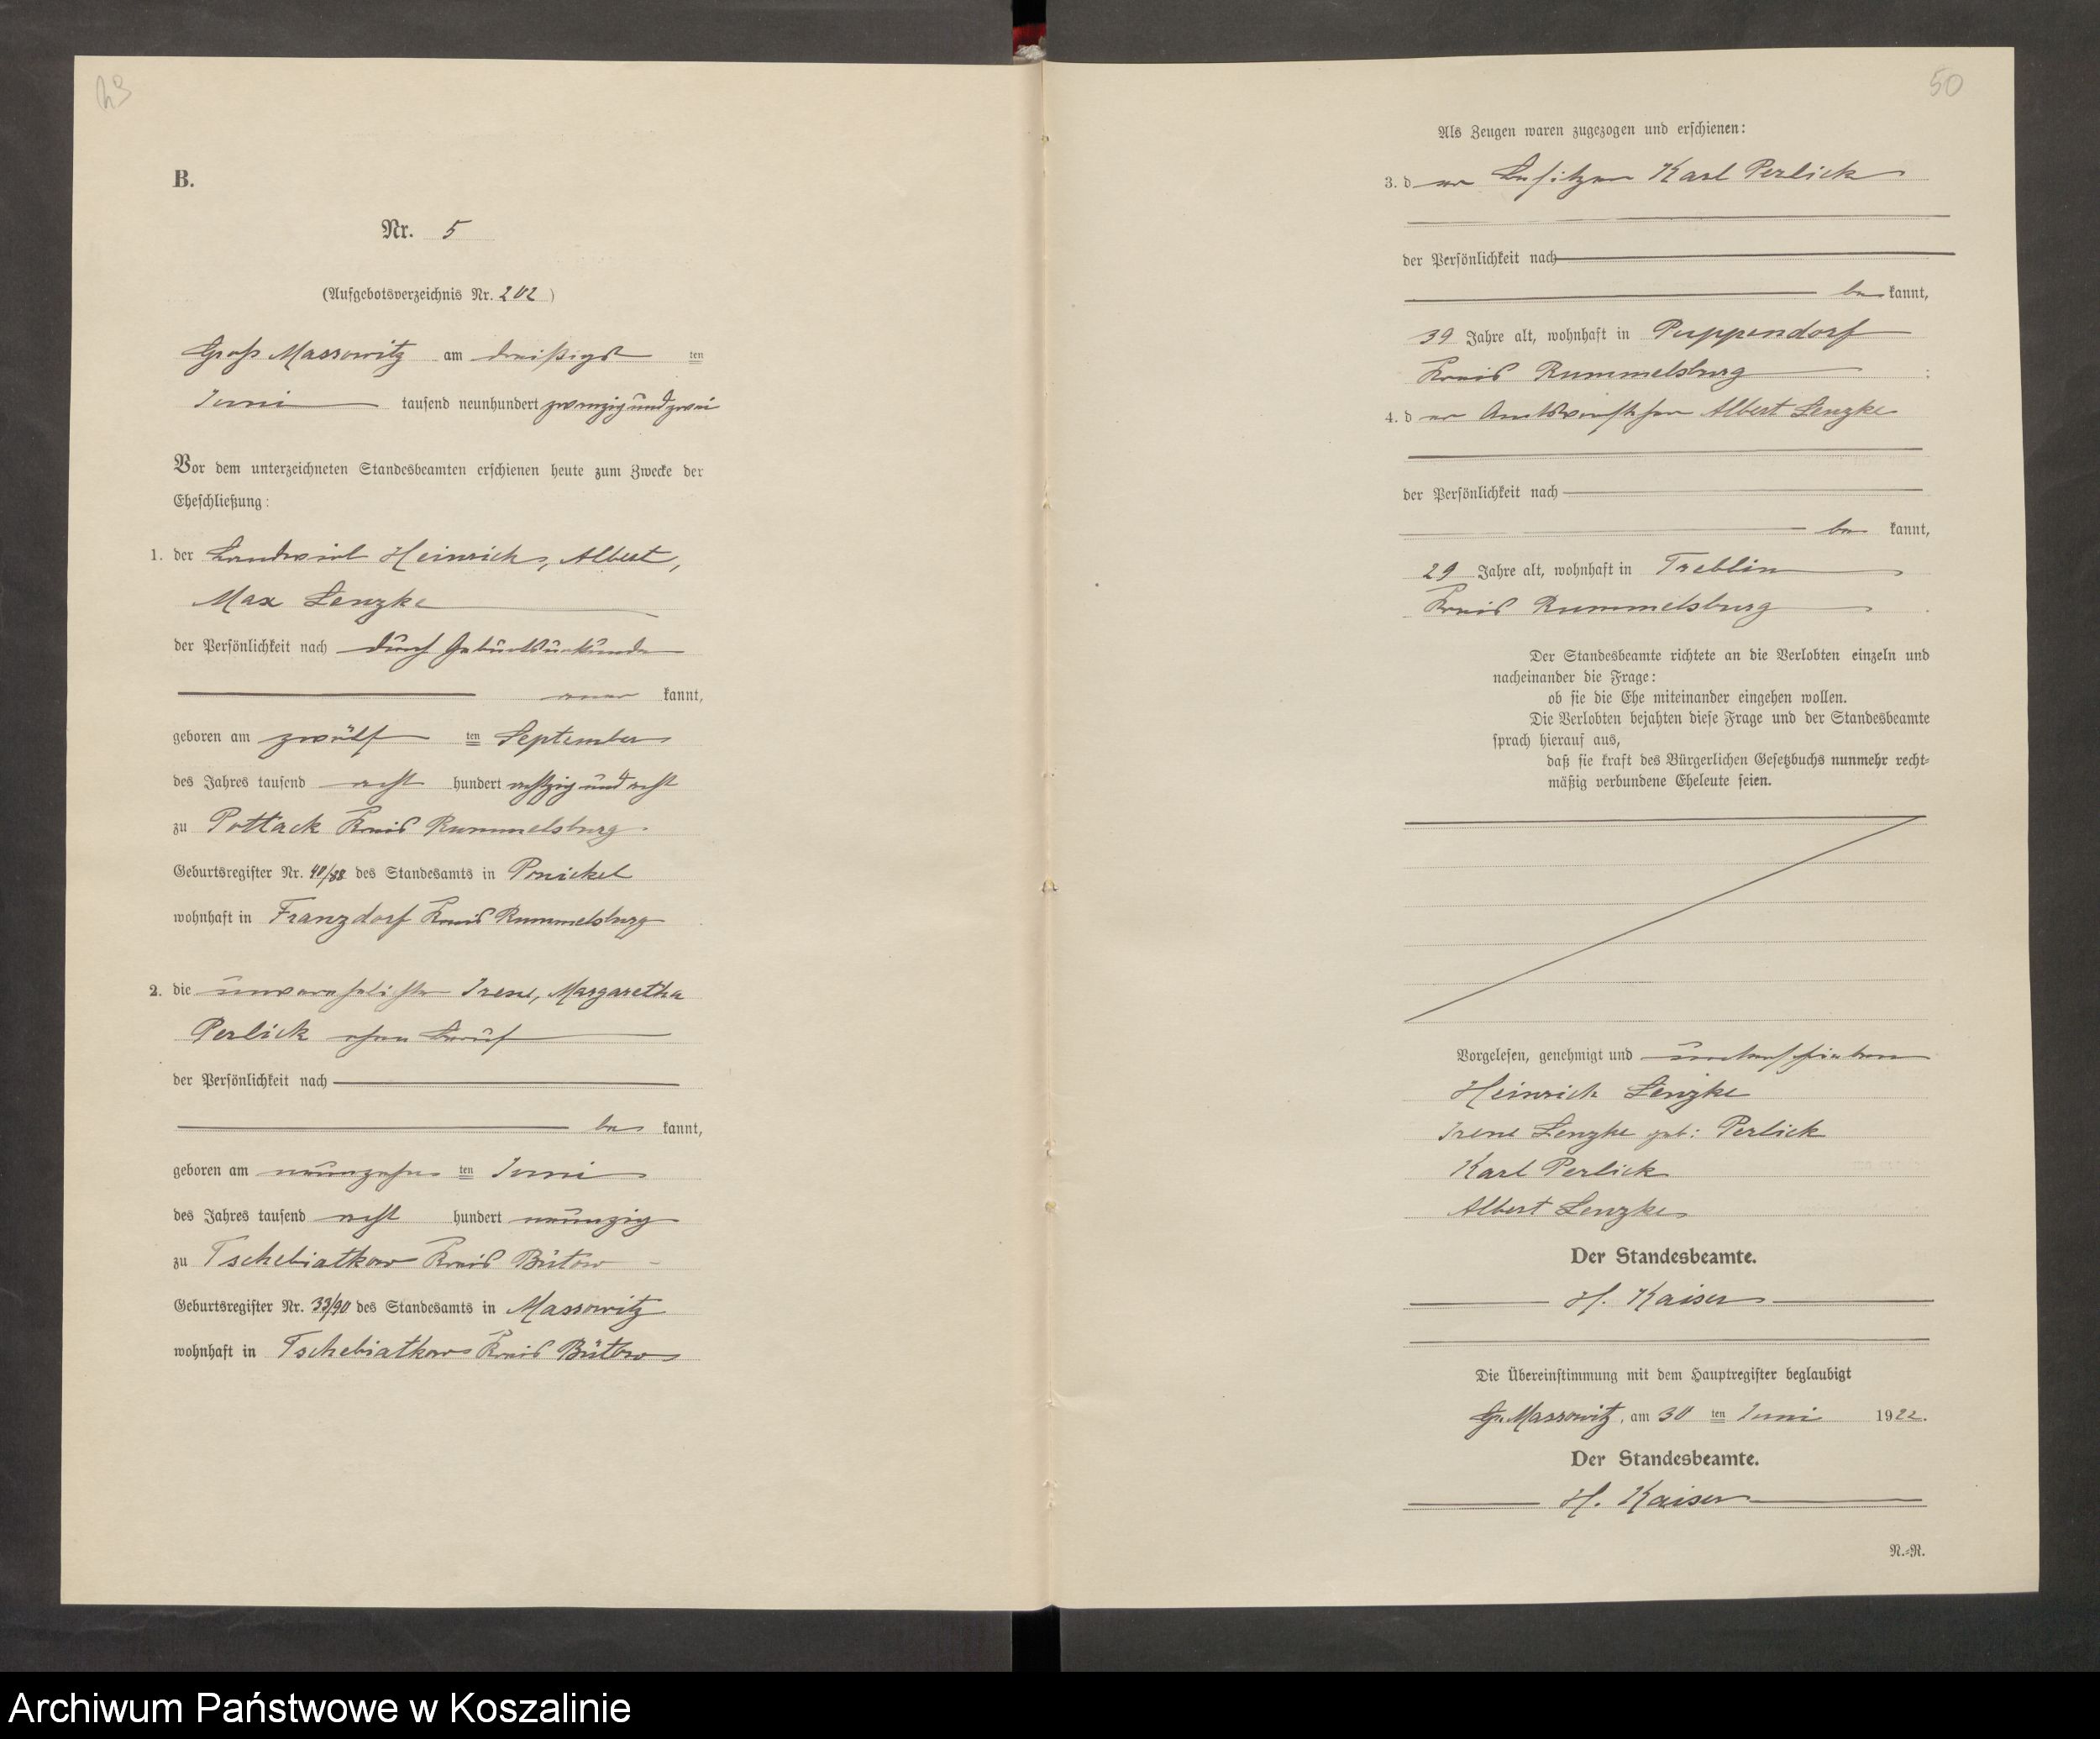 B.
Nr. 5
(Aufgebotsverzeichnis Nr. 202)
Groß Massowitz am dreißigsten
Juni tausend neunhundert zwanzig und zwei
Vor dem unterzeichneten Standesbeamten erschienen heute zum Zwecke der
Eheschließung:
1. der Landwirt Heinrich, Albert,
Max Lenzke
der Persönlichkeit nach durch Geburtsurkunde
aner kannt,
geboren am zwölf ten September
des Jahres tausend acht hundert achtzig und acht
zu Pottack Kreis Rummelsburg.
Geburtsregister Nr. 40/88 des Standesamts in Ponickel
wohnhaft in Franzdorf Kreis Rummelsburg
2. die unverehelichte Irene, Margaretha
Perlick ohne Beruf
der Persönlichkeit nach
be kannt,
geboren am neunzehn ten Juni
des Jahres tausend acht hundert neunzig
zu Tschebiatkow Kreis Bütow
Geburtsregister Nr. 33/90 des Standesamts in Massowitz
wohnhaft in Tschebiatkow Kreis Bütow
50
Als Zeugen waren zugezogen und erschienen:
3. der Besitzer Karl Perlick
der Persönlichkeit nach
be kannt,
39 Jahre alt, wohnhaft in Puppendorf
Kreis Rummelsburg ;
4. der Amtsvorsteher Albert Lenzke
der Persönlichkeit nach
be kannt,
29 Jahre alt, wohnhaft in Treblin
Kreis Rummelsburg .
Der Standesbeamte richtete an die Verlobten einzeln und
nacheinander die Frage:
ob sie die Ehe miteinander eingehen wollen.
Die Verlobten bejahten diese Frage und der Standesbeamte
sprach hierauf aus,
daß sie kraft des Bürgerlichen Gesetzbuchs nunmehr recht=
mäßig verbundene Eheleute seien.
Vorgelesen, genehmigt und unterschrieben
Heinrich Lenzke
Irene Lenzke geb: Perlick
Karl Perlick
Albert Lenzke
Der Standesbeamte.
H. Kaiser
Die Übereinstimmung mit dem Hauptregister beglaubigt
Gr. Massowitz, am 30 ten Juni 1922.
Der Standesbeamte.
H. Kaiser
N.=R.
Archiwum Państwowe w Koszalinie